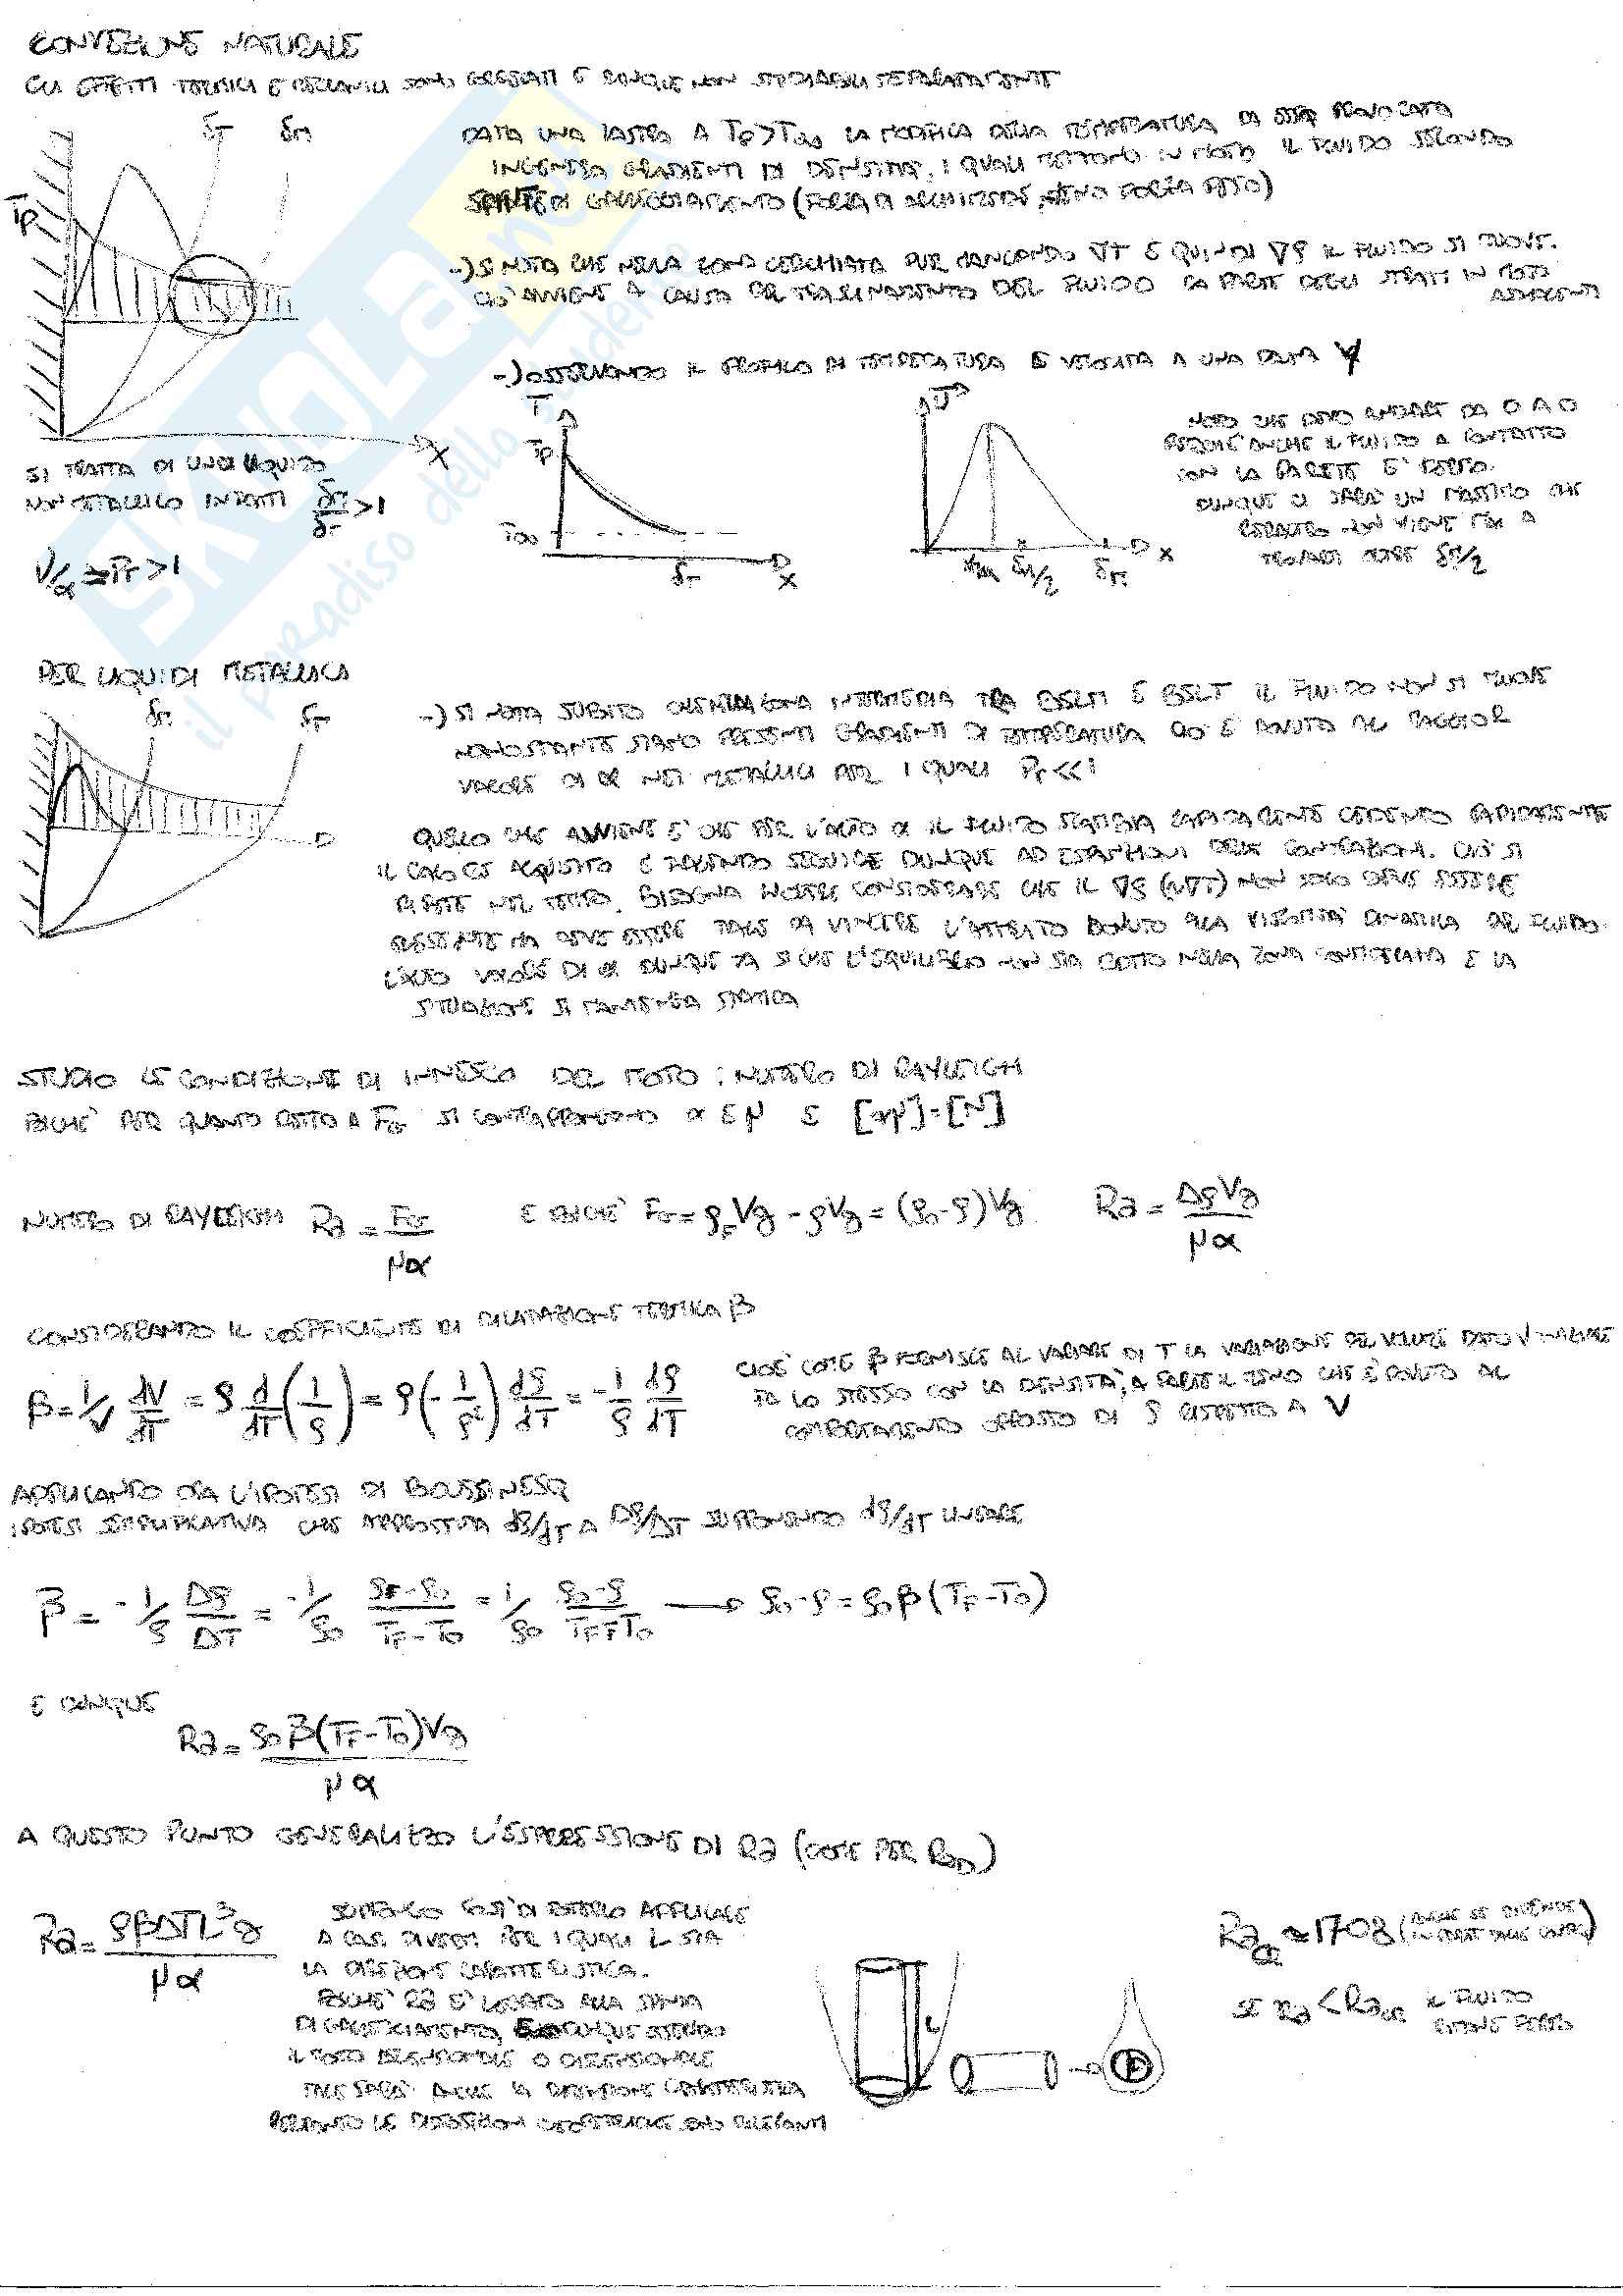 CONVEZIONE NATURALE
GLI EFFETTI TERMICI E MECCANICI SONO CORRELATI E DUNQUE NON STUDIABILI SEPARATAMENTE
δT δM
DATA UNA LASTRA A TP>T∞ LA MODIFICA DELLA TEMPERATURA DA ESSA PROVOCATA
INGENERA GRADIENTI DI DENSITÀ, I QUALI METTONO IN MOTO IL FLUIDO SECONDO
SPINTE DI GALLEGGIAMENTO (FORZA DI ARCHIMEDE, MENO FORZA PESO)
TP
-) SI NOTA CHE NELLA ZONA CERCHIATA PUR MANCANDO ∇T E QUINDI ∇ρ IL FLUIDO SI MUOVE.
CIÒ AVVIENE A CAUSA DEL TRASCINAMENTO DEL FLUIDO DA PARTE DEGLI STRATI IN MOTO
ADIACENTI
X
-) OSSERVANDO IL PROFILO DI TEMPERATURA E VELOCITÀ A UNA DATA Y
T
TP
T∞
δT
X
U
XM δM/2 δM
X
NOTO CHE DEVO ANDARE DA 0 A 0
PERCHÉ ANCHE IL FLUIDO A CONTATTO
CON LA PARETE È FERMO.
DUNQUE CI SARÀ UN MASSIMO CHE
PERALTRO NON VIENE MAI A
TROVARSI OLTRE δM/2
SI TRATTA DI UN LIQUIDO
NON METALLICO INFATTI δM/δT >1
ν/α = Pr >1
PER LIQUIDI METALLICI
δM δT
-) SI NOTA SUBITO CHE NELLA ZONA INTERMEDIA TRA BSLM E BSLT IL FLUIDO NON SI MUOVE
NONOSTANTE SIANO PRESENTI GRADIENTI DI TEMPERATURA CIÒ È DOVUTO AL MAGGIOR
VALORE DI α NEI METALLICI PER I QUALI Pr<<1
QUELLO CHE AVVIENE È CHE PER L'ALTO α IL FLUIDO SCAMBIA RAPIDAMENTE CEDENDO RAPIDAMENTE
IL CALORE ACQUISITO E FACENDO SEGUIRE DUNQUE AD ESPANSIONI DELLE CONTRAZIONI. CIÒ SI
RIPETE NEL TEMPO. BISOGNA INOLTRE CONSIDERARE CHE IL ∇ρ (∇T) NON SOLO DEVE ESSERE
PRESENTE MA DEVE ESSERE TALE DA VINCERE L'ATTRITO DOVUTO ALLA VISCOSITÀ DINAMICA DEL FLUIDO.
L'ALTO VALORE DI α DUNQUE FA SÌ CHE L'EQUILIBRIO NON SIA ROTTO NELLA ZONA CONSIDERATA E LA
SITUAZIONE SI MANTENGA STATICA
STUDIO LE CONDIZIONI DI INNESCO DEL MOTO: NUMERO DI RAYLEIGH
POICHÉ PER QUANTO DETTO A FG SI CONTRAPPONGONO α E μ E [αμ]=[N]
NUMERO DI RAYLEIGH Ra = FG/μα E POICHÉ FG = ρFVg - ρVg = (ρ0-ρ)Vg Ra = ΔρVg/μα
CONSIDERANDO IL COEFFICIENTE DI DILATAZIONE TERMICA β
β = 1/V dV/dT = ρ d/dT (1/ρ) = ρ(-1/ρ²) dρ/dT = -1/ρ dρ/dT
CIOÈ COME β FORNISCE AL VARIARE DI T LA VARIAZIONE DEL VOLUME DATO V INIZIALE
FA LO STESSO CON LA DENSITÀ, A PARTE IL MENO CHE È DOVUTO AL
COMPORTAMENTO OPPOSTO DI ρ RISPETTO A V
APPLICANDO ORA L'IPOTESI DI BOUSSINESQ
IPOTESI SEMPLIFICATIVA CHE APPROSSIMA dρ/dT A Δρ/ΔT SUPPONENDO dρ/dT LINEARE
β = -1/ρ Δρ/ΔT = -1/ρ0 (ρF-ρ0)/(TF-T0) = 1/ρ0 (ρ0-ρ)/(TF-T0) → ρ0-ρ = ρ0β(TF-T0)
E DUNQUE
Ra = ρ0β(TF-T0)Vg/μα
A QUESTO PUNTO GENERALIZZO L'ESPRESSIONE DI Ra (COME PER ReD)
Ra = ρβΔTL³g/μα
COSÌ DI POTERLO APPLICARE
A CASI DIVERSI PER I QUALI L SIA
LA DIMENSIONE CARATTERISTICA.
POICHÉ Ra È LEGATO ALLA SPINTA
DI GALLEGGIAMENTO, DUNQUE ESSENDO
IL MOTO O DIMENSIONALE
TALE SARÀ ANCHE LA DIMENSIONE CARATTERISTICA
PERTANTO LE DISPOSIZIONI GEOMETRICHE SONO RILEVANTI
L
Ra CR ≈ 1708 (ANCHE SE DIPENDE
IN PARTE DALLE)
SE Ra < Ra CR IL FLUIDO
RIMANE FERMO
SKUOLA.net
il paradiso dello studente